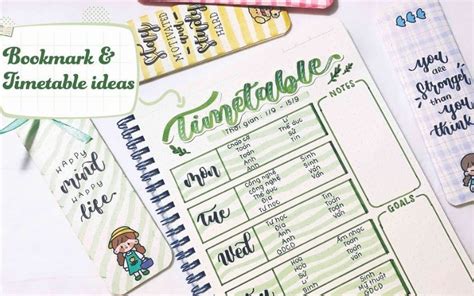 Bookmark &
Timetable ideas
Stay
MOTIVATED
and
Study
HARD
Timetable
Thời gian: 11/9 - 15/9
NOTES
mon
Chào cờ
Toán
Toán
Anh
Anh
Lí
Thể dục
Sử
Tin
Tue
Công nghệ
Công nghệ
Thể dục
Địa
Sinh
Toán
Văn
Văn
Wed
Tự học
Tin
Địa
Anh
GDCD
Sinh
Toán
Toán
Văn
GOALS
Hoá
Hoá
Sử
Văn
HAPPY
mind
HAPPY
life
you
are
Stronger
than
you
think